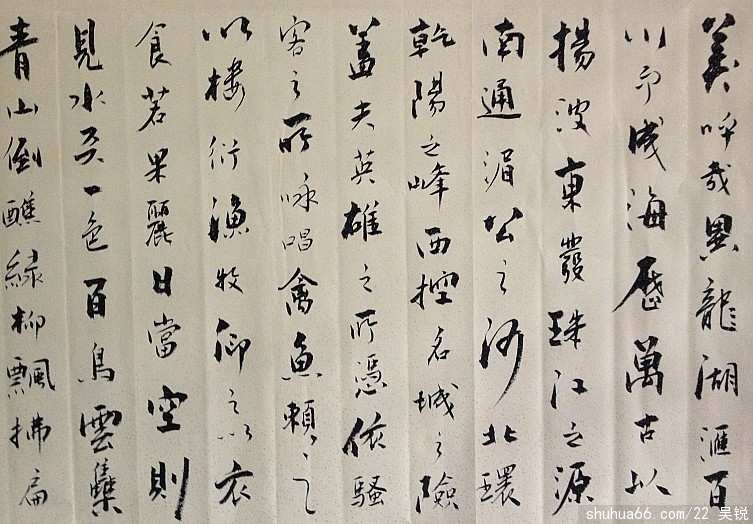 美呼哉異龍湖滙百
川而成海歷萬古以
揚波東發珠江之源
南通湄公之河北環
乾陽之峰西控名城之險
蓋夫英雄之所憑依騷
客之所咏唱禽魚賴之
以棲衍漁牧仰之以衣
食若果麗日當空則
見水天一色百鳥雲集
青山倒醮綠柳飄拂扁
shuhua66.com/22 吴锐